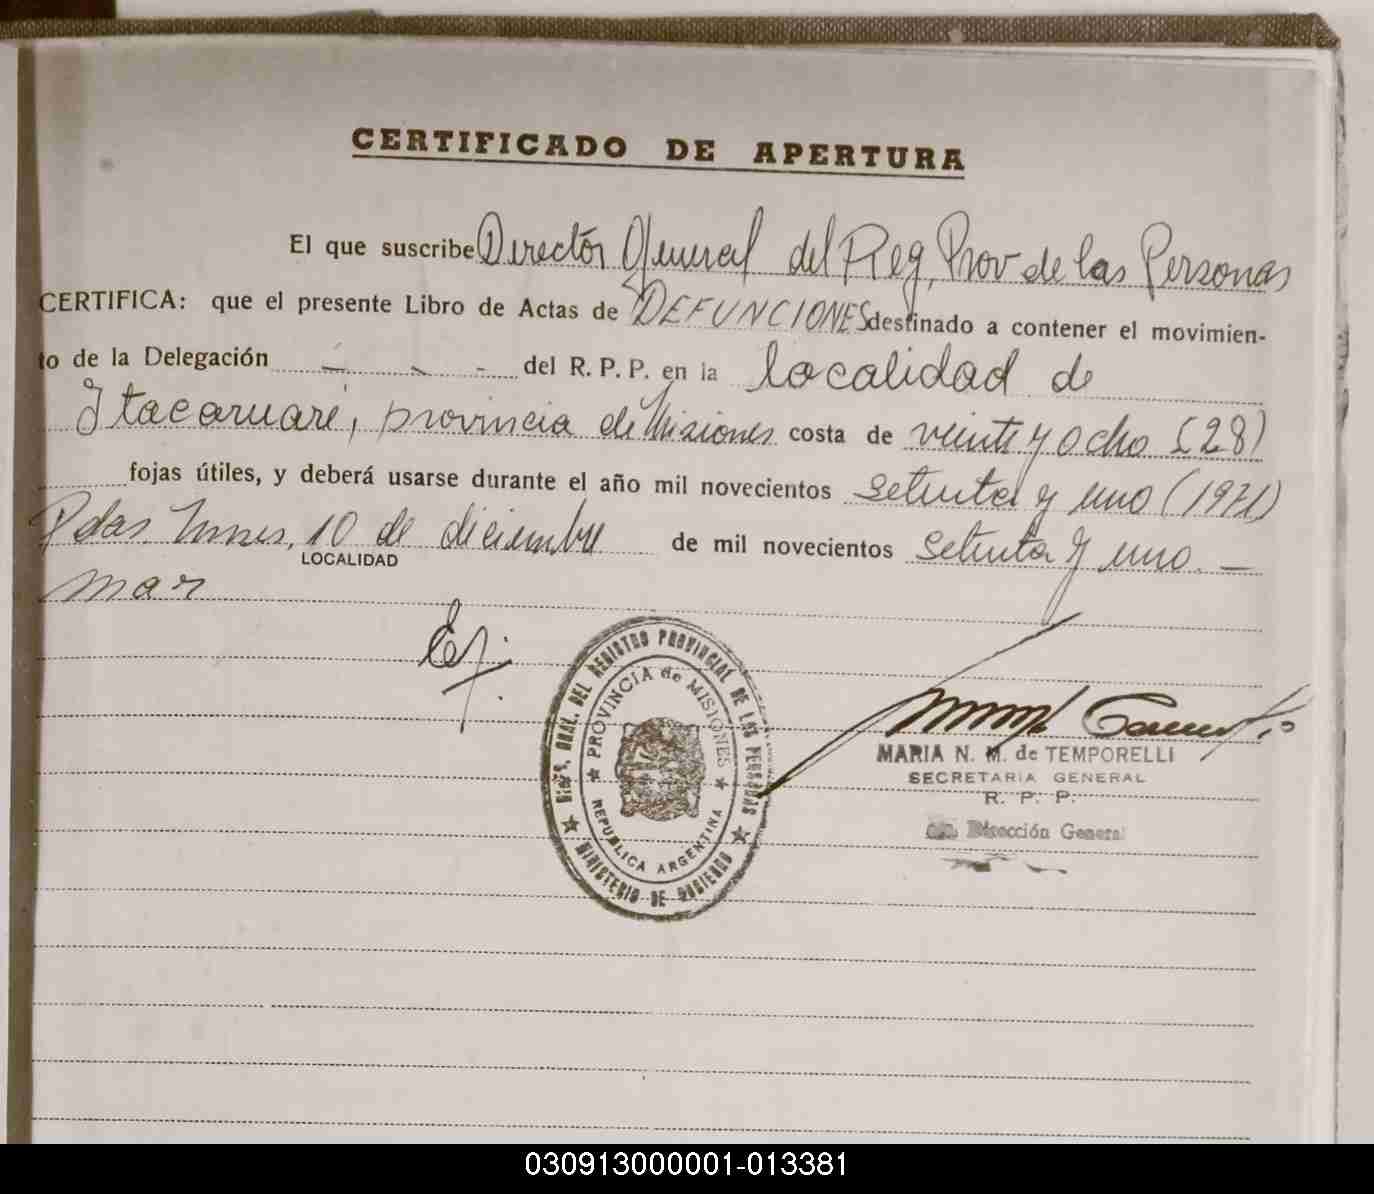 CERTIFICADO DE APERTURA
El que suscribe Director General del Reg. Prov de las Personas
CERTIFICA: que el presente Libro de Actas de DEFUNCIONES destinado a contener el movimien-
to de la Delegación - - - del R. P. P. en la localidad de
Itacaruaré, provincia de Misiones costa de veinte y ocho (28)
fojas útiles, y deberá usarse durante el año mil novecientos setenta y uno (1971)
Pdas. 10 de diciembre de mil novecientos setenta y uno. —
LOCALIDAD
mar
DIREC. GRAL. DEL REGISTRO PROVINCIAL DE LAS PERSONAS
PROVINCIA de MISIONES
REPUBLICA ARGENTINA
MINISTERIO DE GOBIERNO
MARIA N. M. de TEMPORELLI
SECRETARIA GENERAL
R. P. P.
Dirección General
030913000001-013381